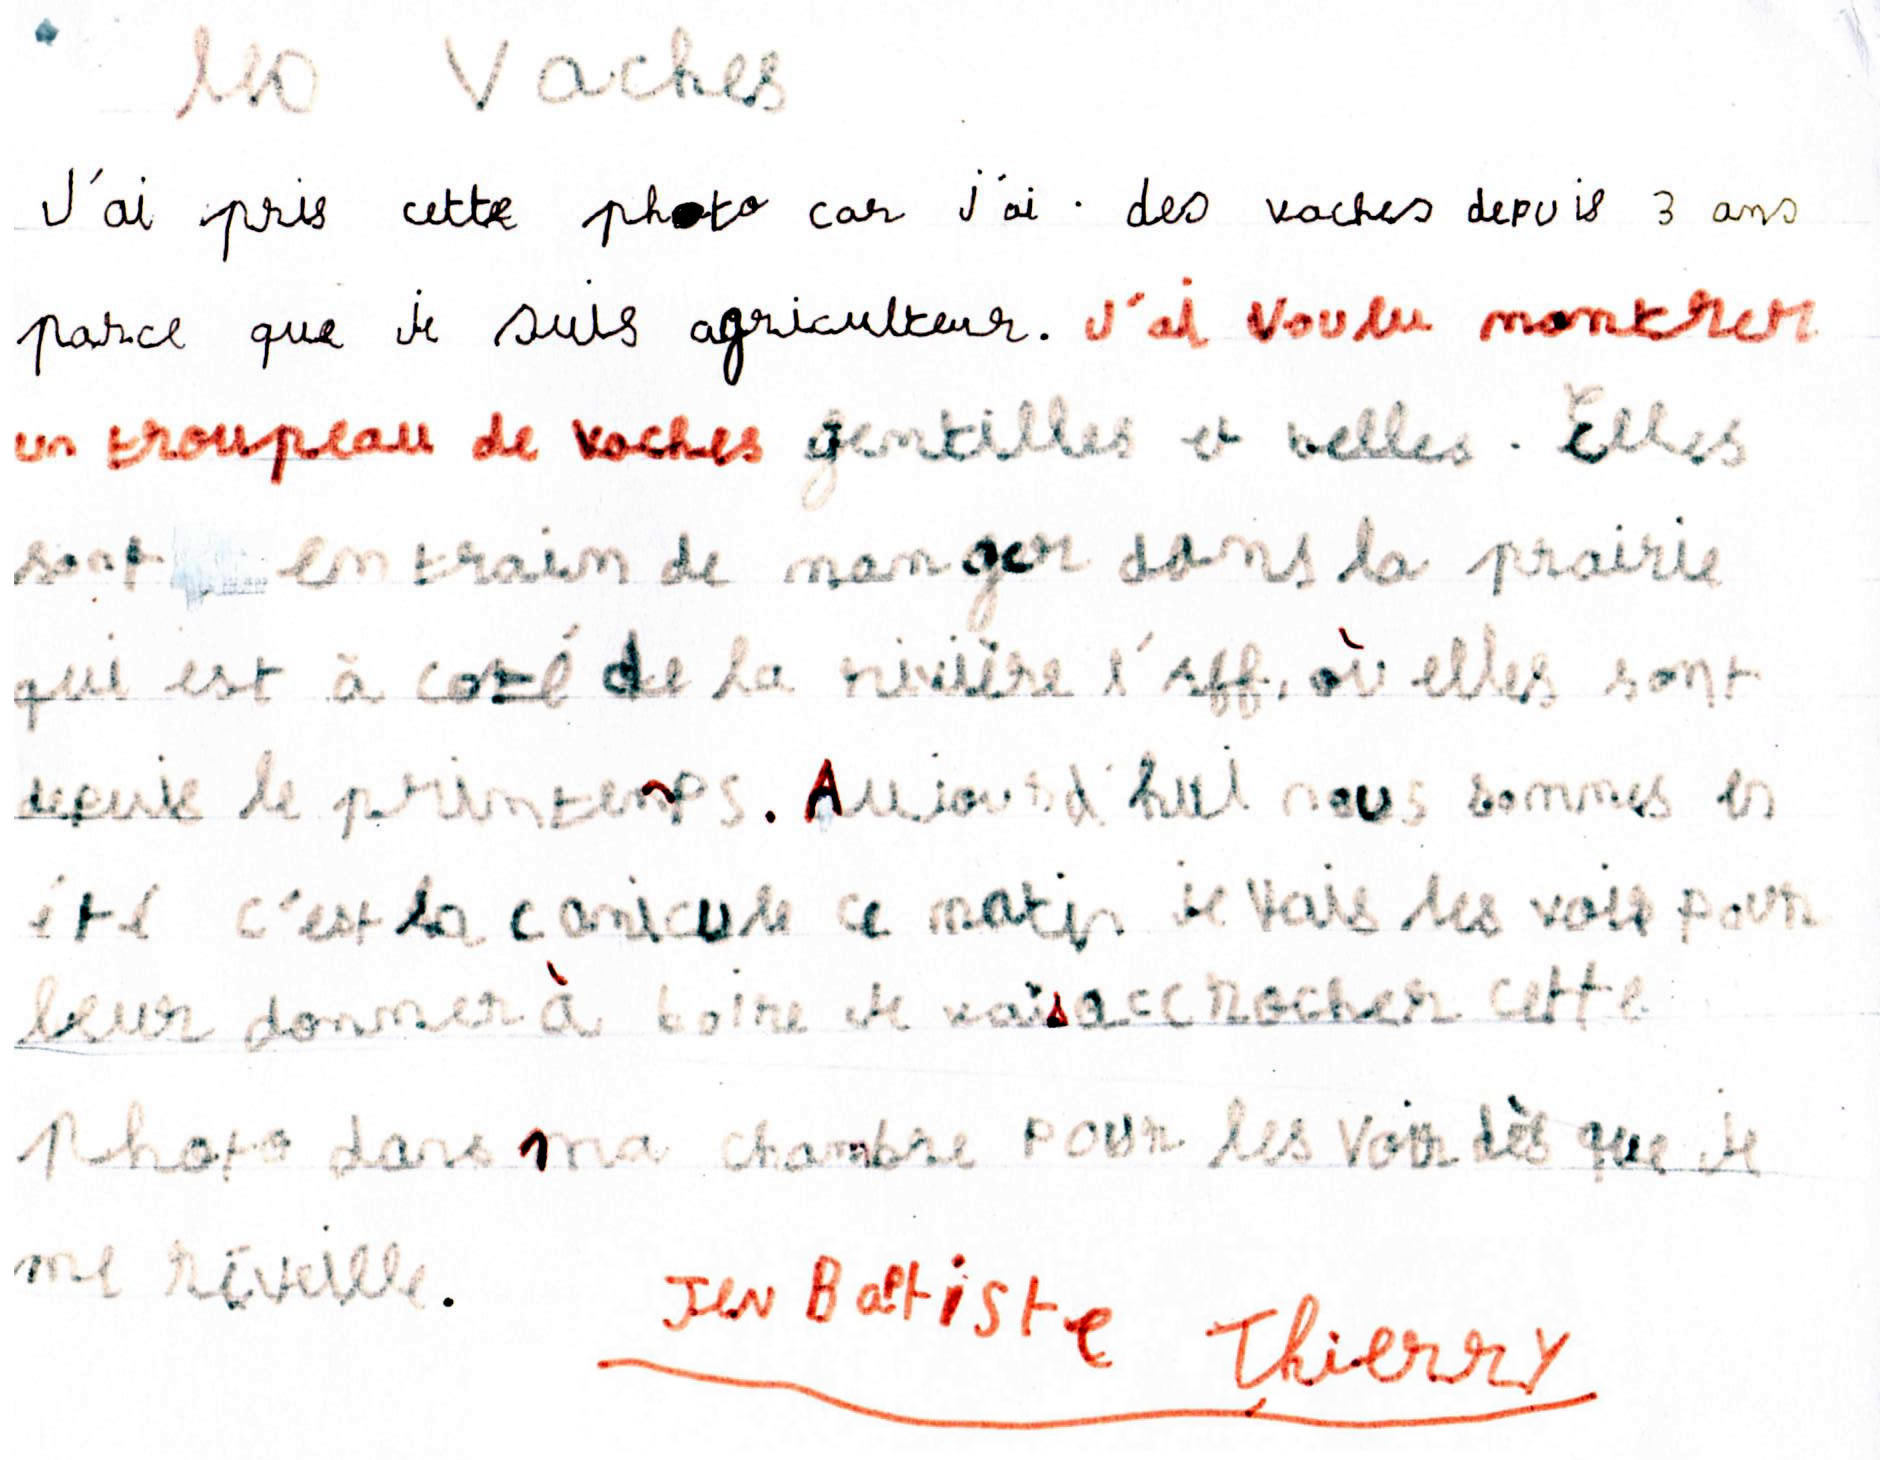 les Vaches
J'ai pris cette photo car j'ai des vaches depuis 3 ans
parce que je suis agriculteur. J'ai voulu montrer
un troupeau de vaches gentilles et belles. Elles
sont en train de manger dans la prairie
qui est à coté de la rivière l'Aff, où elles sont
depuis le printemps. Aujourd'hui nous sommes en
été c'est la canicule ce matin je vais les voir pour
leur donner à boire je vais accrocher cette
photo dans ma chambre pour les voir dès que je
me réveille.
Jen Baptiste Thierry